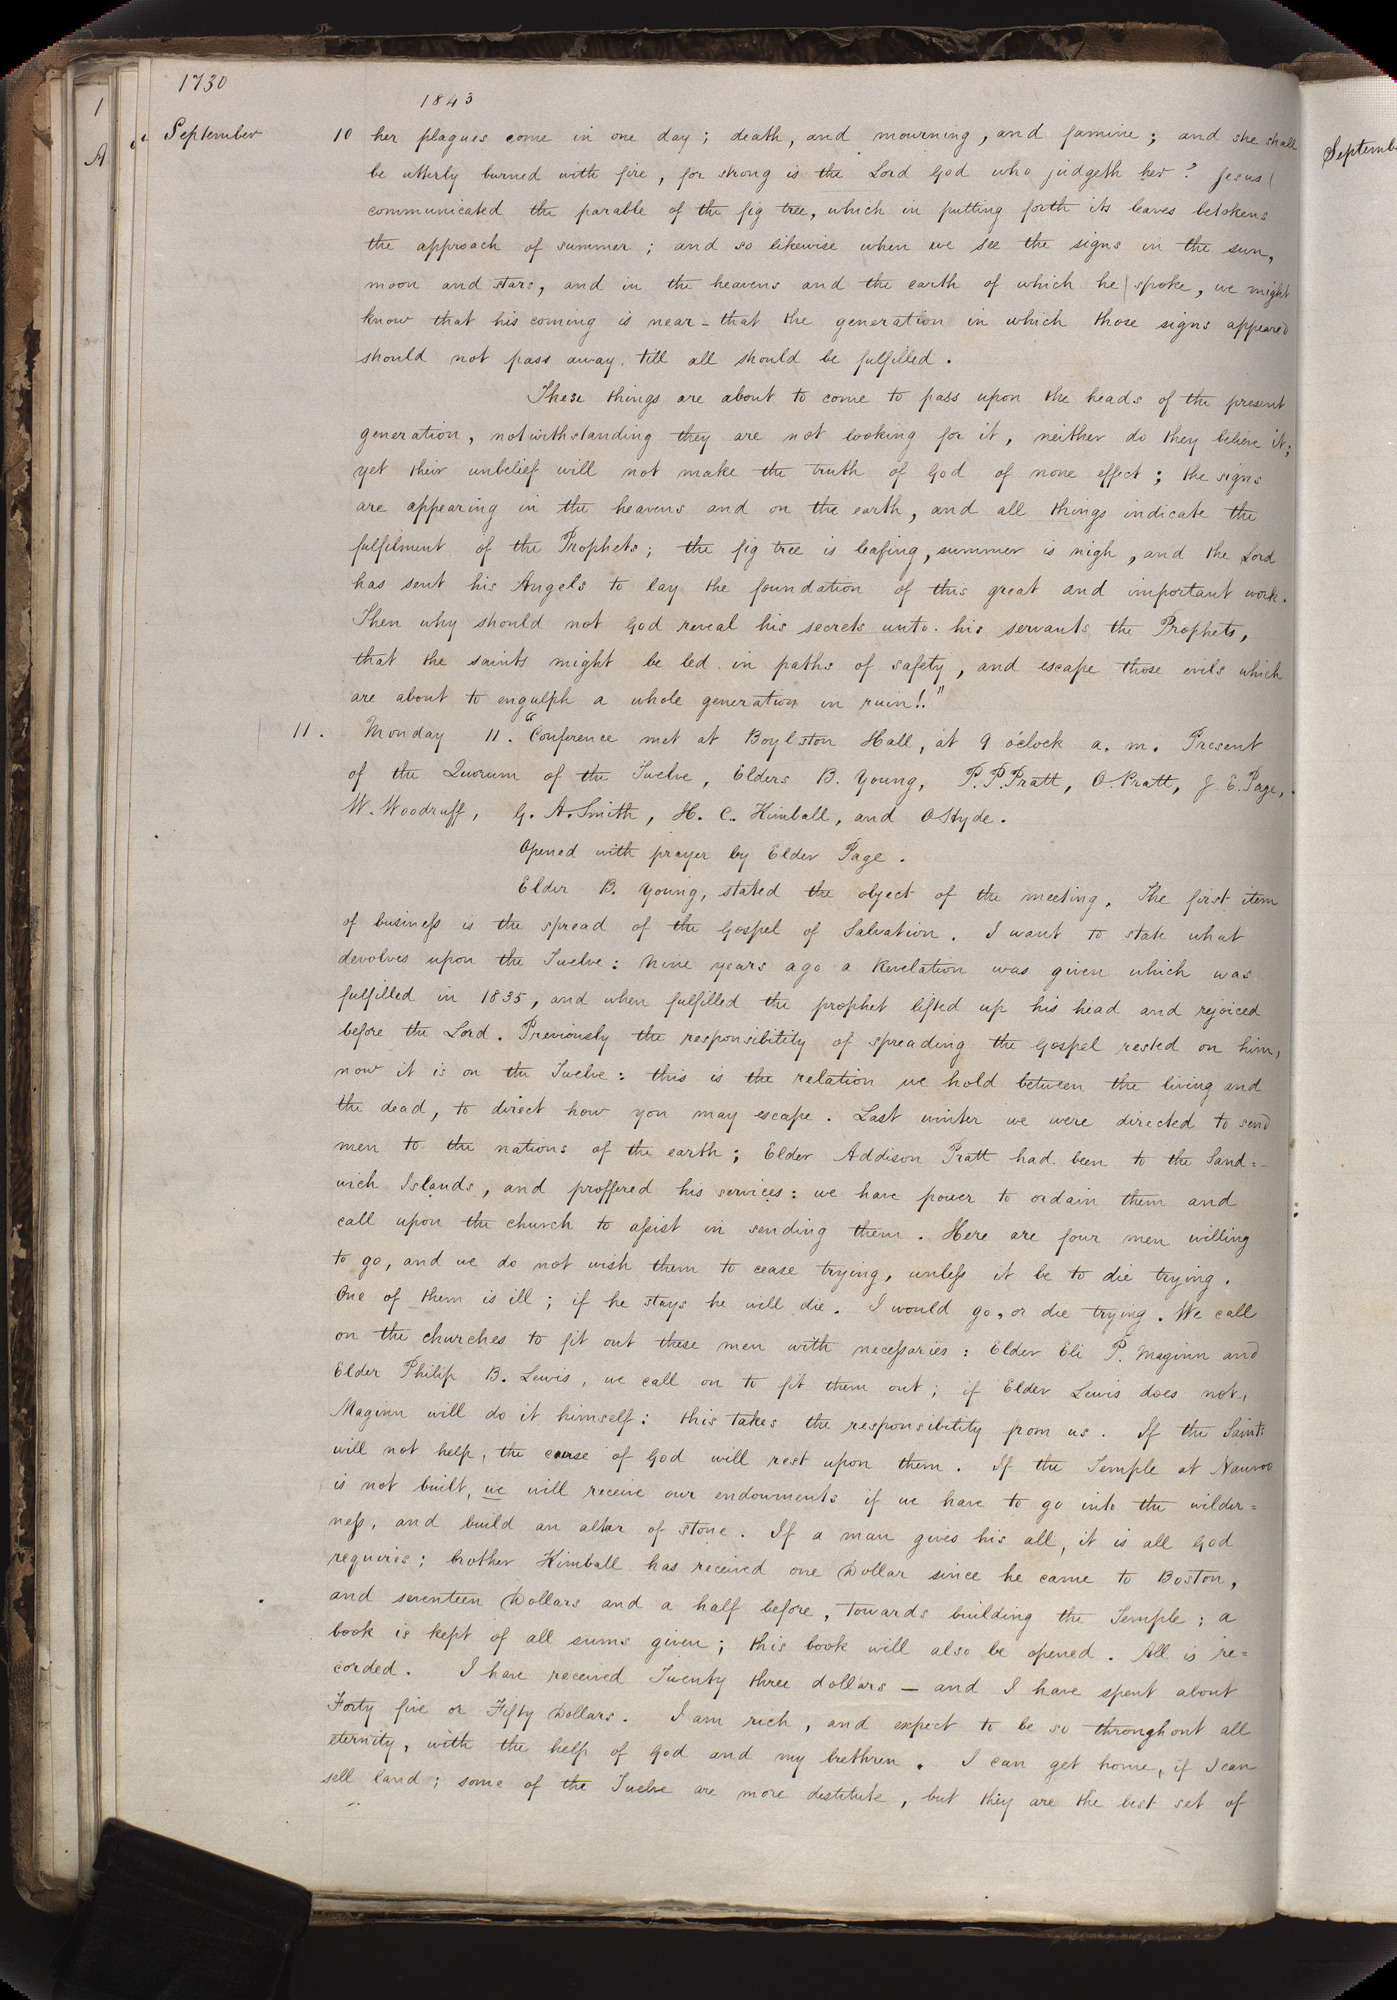 1730
1843
September 10 her plagues come in one day; death, and mourning, and famine; and she shall
be utterly burned with fire, for strong is the Lord God who judgeth her? Jesus
communicated the parable of the fig tree, which in putting forth its leaves betokens
the approach of summer; and so likewise when we see the signs in the sun,
moon and stars, and in the heavens and the earth of which he spoke, we might
know that his coming is near – that the generation in which those signs appeared
should not pass away till all should be fulfilled.
These things are about to come to pass upon the heads of the present
generation, notwithstanding they are not looking for it, neither do they believe it;
yet their unbelief will not make the truth of God of none effect; the signs
are appearing in the heavens and on the earth, and all things indicate the
fulfilment of the Prophets; the fig tree is leafing, summer is nigh, and the Lord
has sent his Angels to lay the foundation of this great and important work.
Then why should not God reveal his secrets unto his servants the Prophets,
that the saints might be led in paths of safety, and escape those evils which
are about to engulph a whole generation in ruin!"
11. Monday 11. "Conference met at Boylston Hall, at 9 o'clock a. m. Present
of the Quorum of the Twelve, Elders B. Young, P. P. Pratt, O. Pratt, J. E. Page,
W. Woodruff, G. A. Smith, H. C. Kimball, and O Hyde.
Opened with prayer by Elder Page.
Elder B. Young, stated the object of the meeting. The first item
of business is the spread of the Gospel of Salvation. I want to state what
devolves upon the Twelve: Nine years ago a Revelation was given which was
fulfilled in 1835, and when fulfilled the prophet lifted up his head and rejoiced
before the Lord. Previously the responsibility of spreading the Gospel rested on him,
now it is on the Twelve: this is the relation we hold between the living and
the dead, to direct how you may escape. Last winter we were directed to send
men to the nations of the earth; Elder Addison Pratt had been to the Sand=
wich Islands, and proffered his services: we have power to ordain them and
call upon the church to assist in sending them. Here are four men willing
to go, and we do not wish them to cease trying, unless it be to die trying.
One of them is ill; if he stays he will die. I would go, or die trying. We call
on the churches to fit out these men with necessaries: Elder Eli P. Maginn and
Elder Philip B. Lewis, we call on to fit them out; if Elder Lewis does not,
Maginn will do it himself: this takes the responsibility from us. If the Saints
will not help, the curse of God will rest upon them. If the Temple at Nauvoo
is not built, we will receive our endowments if we have to go into the wilder=
ness, and build an altar of stone. If a man gives his all, it is all God
requires: brother Kimball has received one Dollar since he came to Boston,
and seventeen Dollars and a half before, towards building the Temple; a
book is kept of all sums given; this book will also be opened. All is re=
corded. I have received Twenty three dollars – and I have spent about
Forty five or Fifty Dollars. I am rich, and expect to be so throughout all
eternity, with the help of God and my brethren. I can get home, if I can
sell land; some of the Twelve are more destitute, but they are the best set of